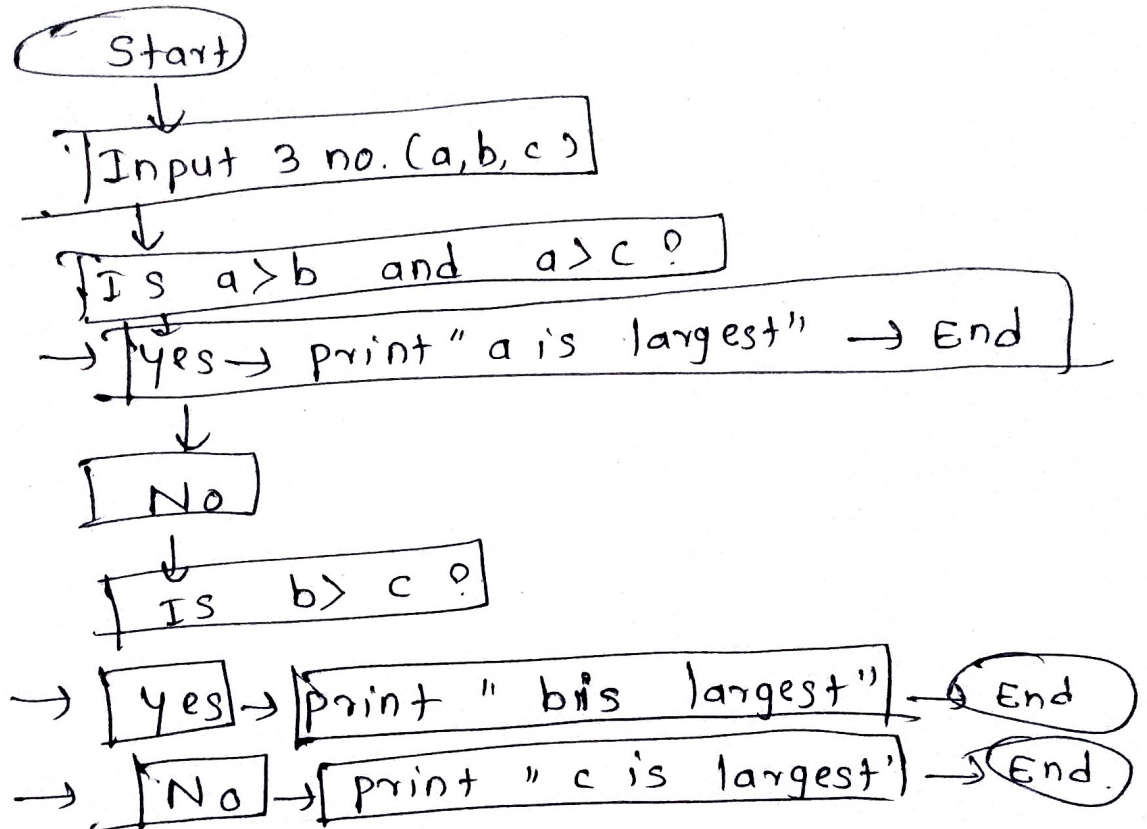 Start
Input 3 no. (a, b, c)
Is a>b and a>c ?
→ Yes → print " a is largest" → End
No
Is b> c ?
→ Yes → print " b is largest" → End
→ No → print " c is largest" → End.